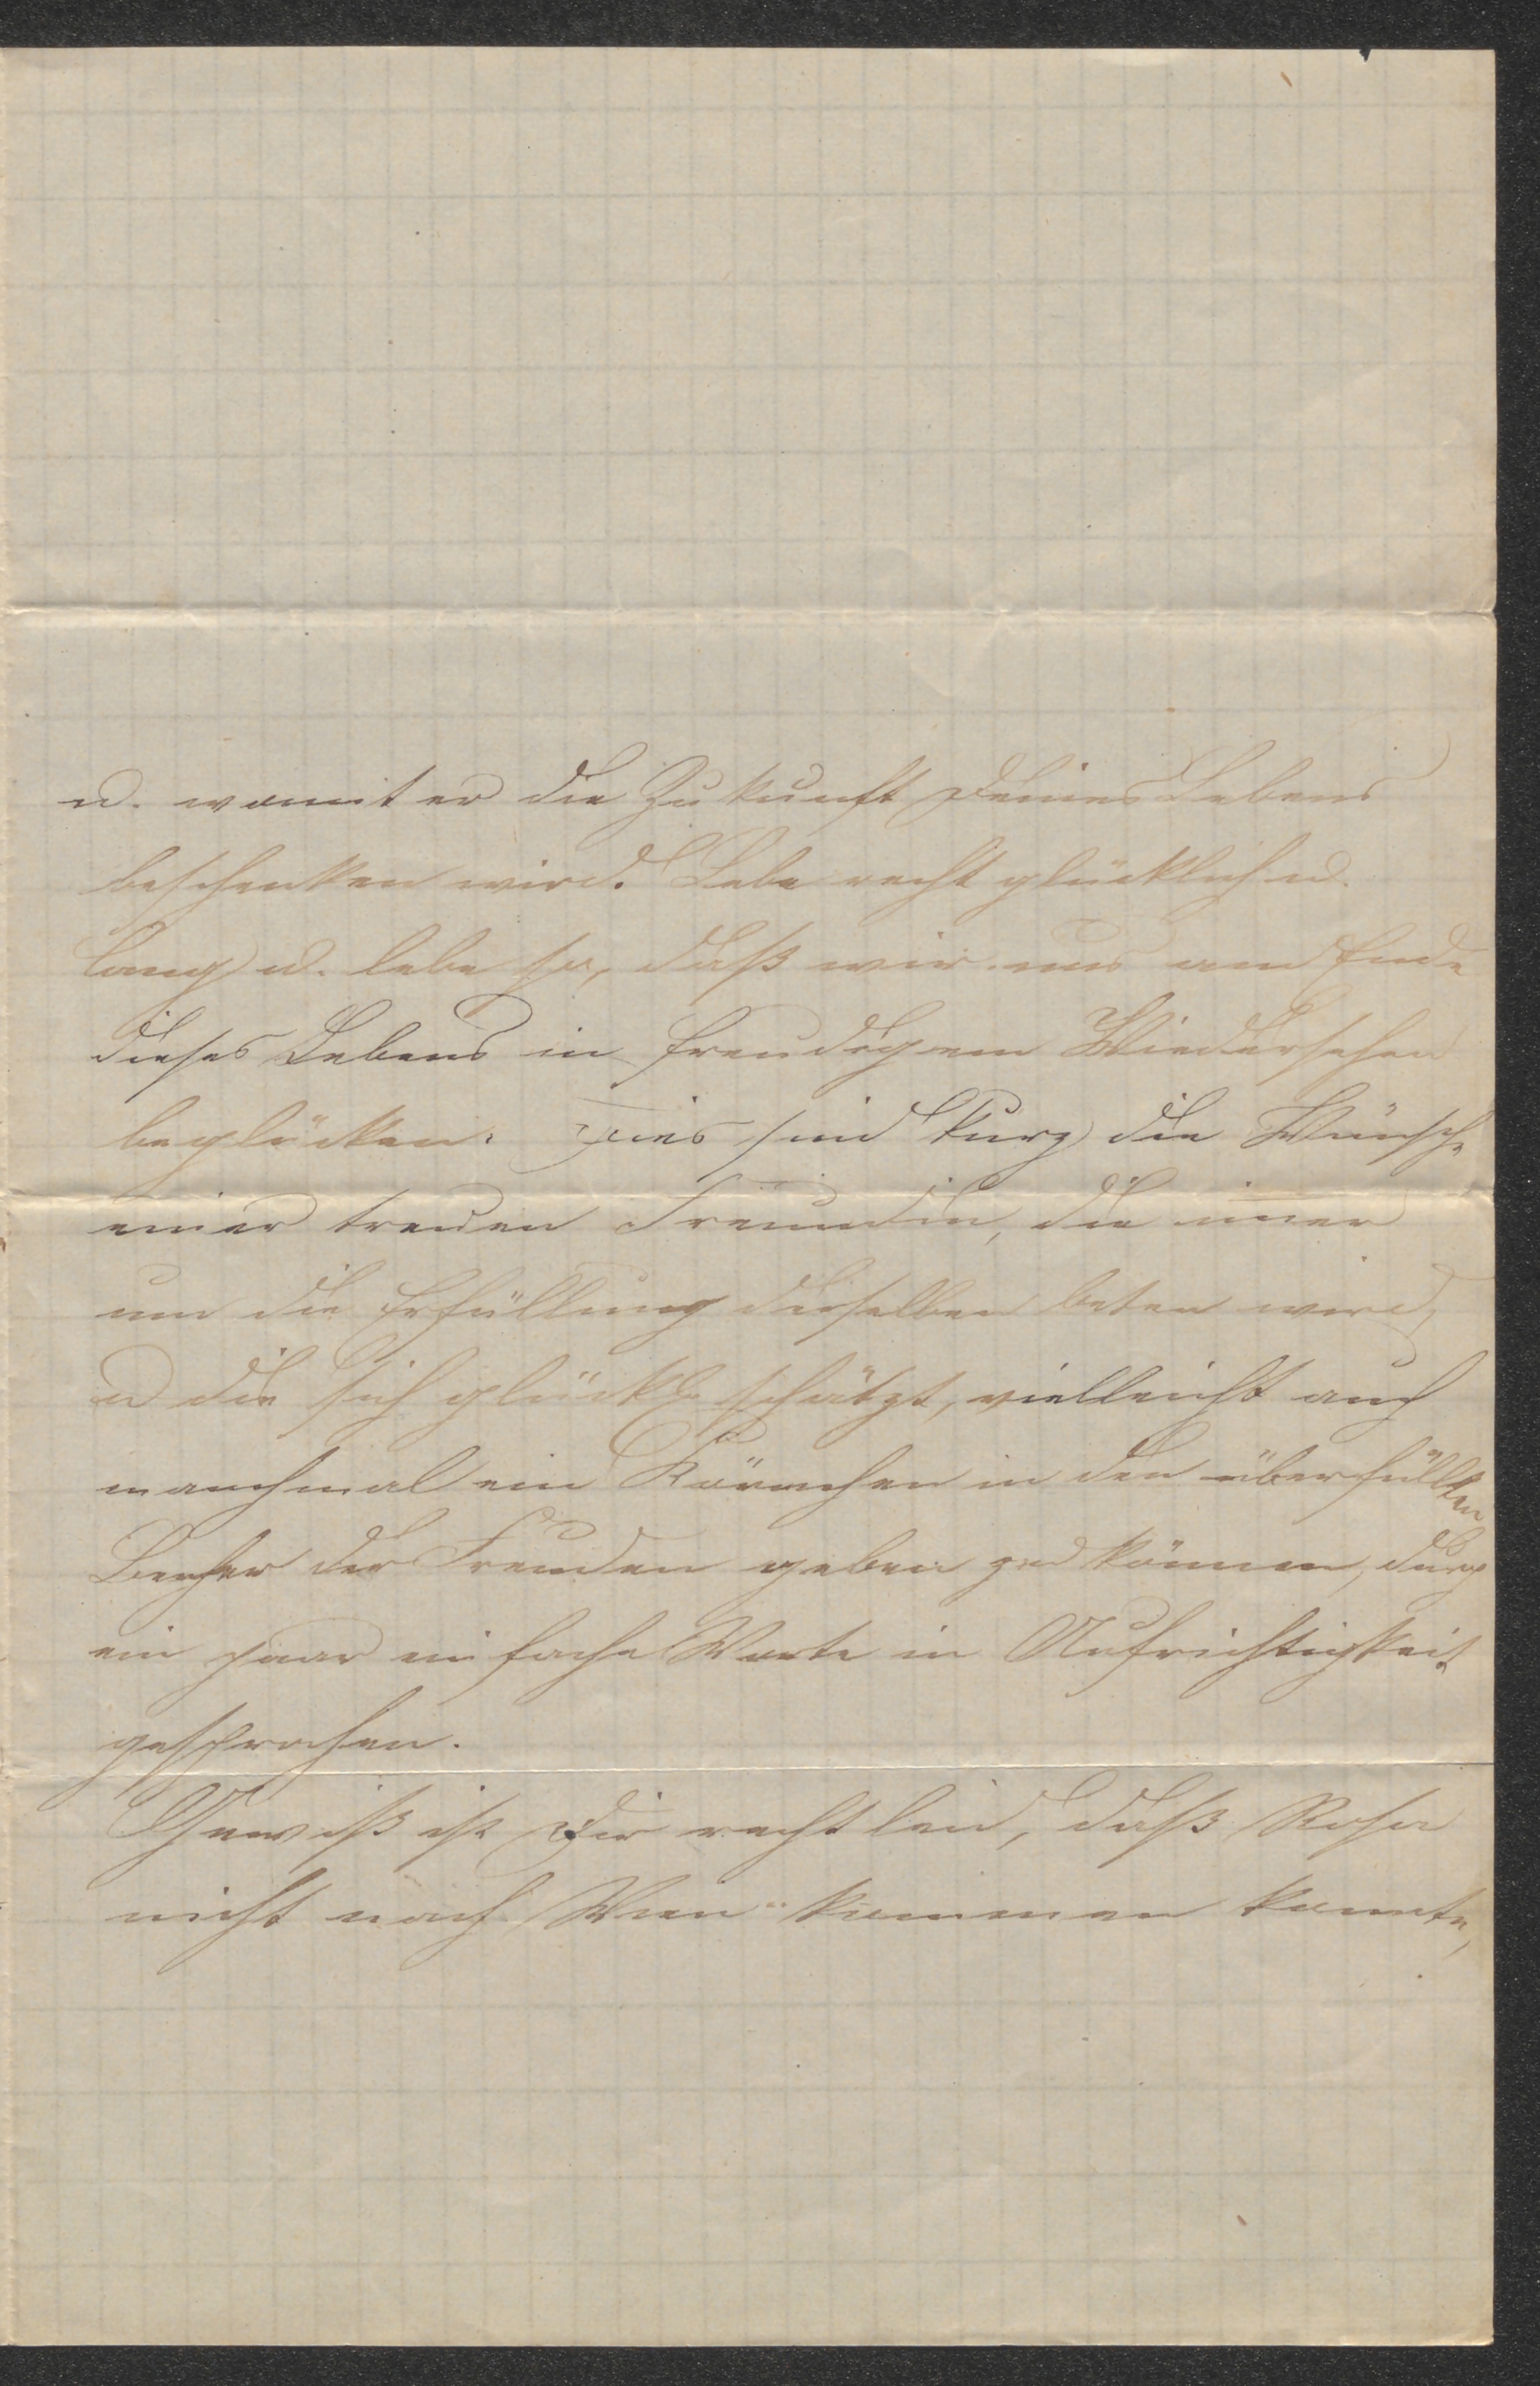 u. womit er die Zukunft Deines Lebens
beschenken wird. Lebe recht glücklich u.
lang u. lebe so, daß wir uns am Ende
dieses Lebens in freudigem Wiedersehen
beglücken. Dies sind kurz die Wünsche
einer treuen Freundin, die imer
um die Erfüllung derselben beten wird,
u die sich glückl. schätzt, vielleicht auch
manchmal ein Körnchen in den überfüllten
Becher der Freuden geben zu können, durch
ein paar einfache Worte in Aufrichtigkeit
gesprochen.
Gewiß ist Dir recht leid, daß Rosa
nicht nach Wien kommen konnte,